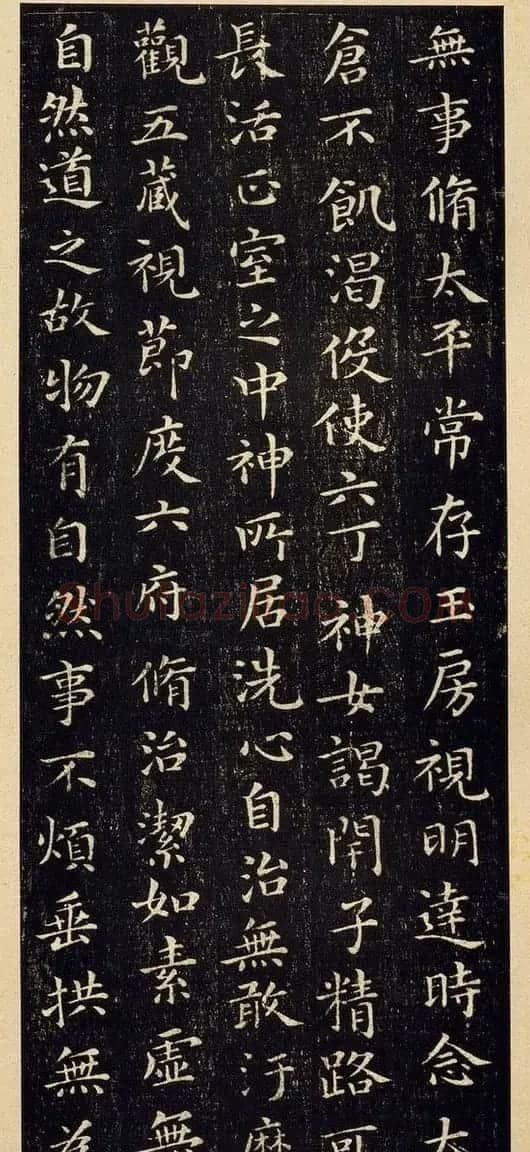 無事脩太平常存玉房視明達時念
倉不飢渴役使六丁神女謁閇子精路可
長活正室之中神所居洗心自治無敢汙
觀五藏視節度六府脩治潔如素虛無
自然道之故物有自然事不煩垂拱無